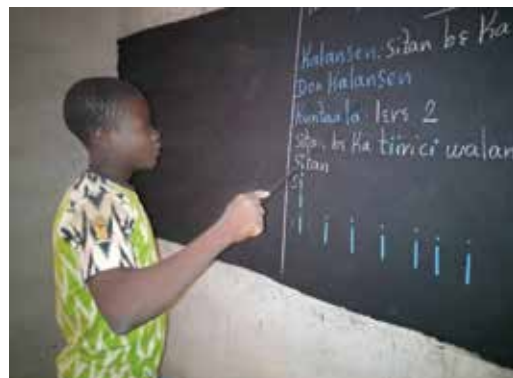 Kalansen: sitan bɛ Ka
Don Kalansen
Kuntaala lɛrɛ 2
sitan bɛ Ka tiirici walan
sitan
si
i
i i i i i i i